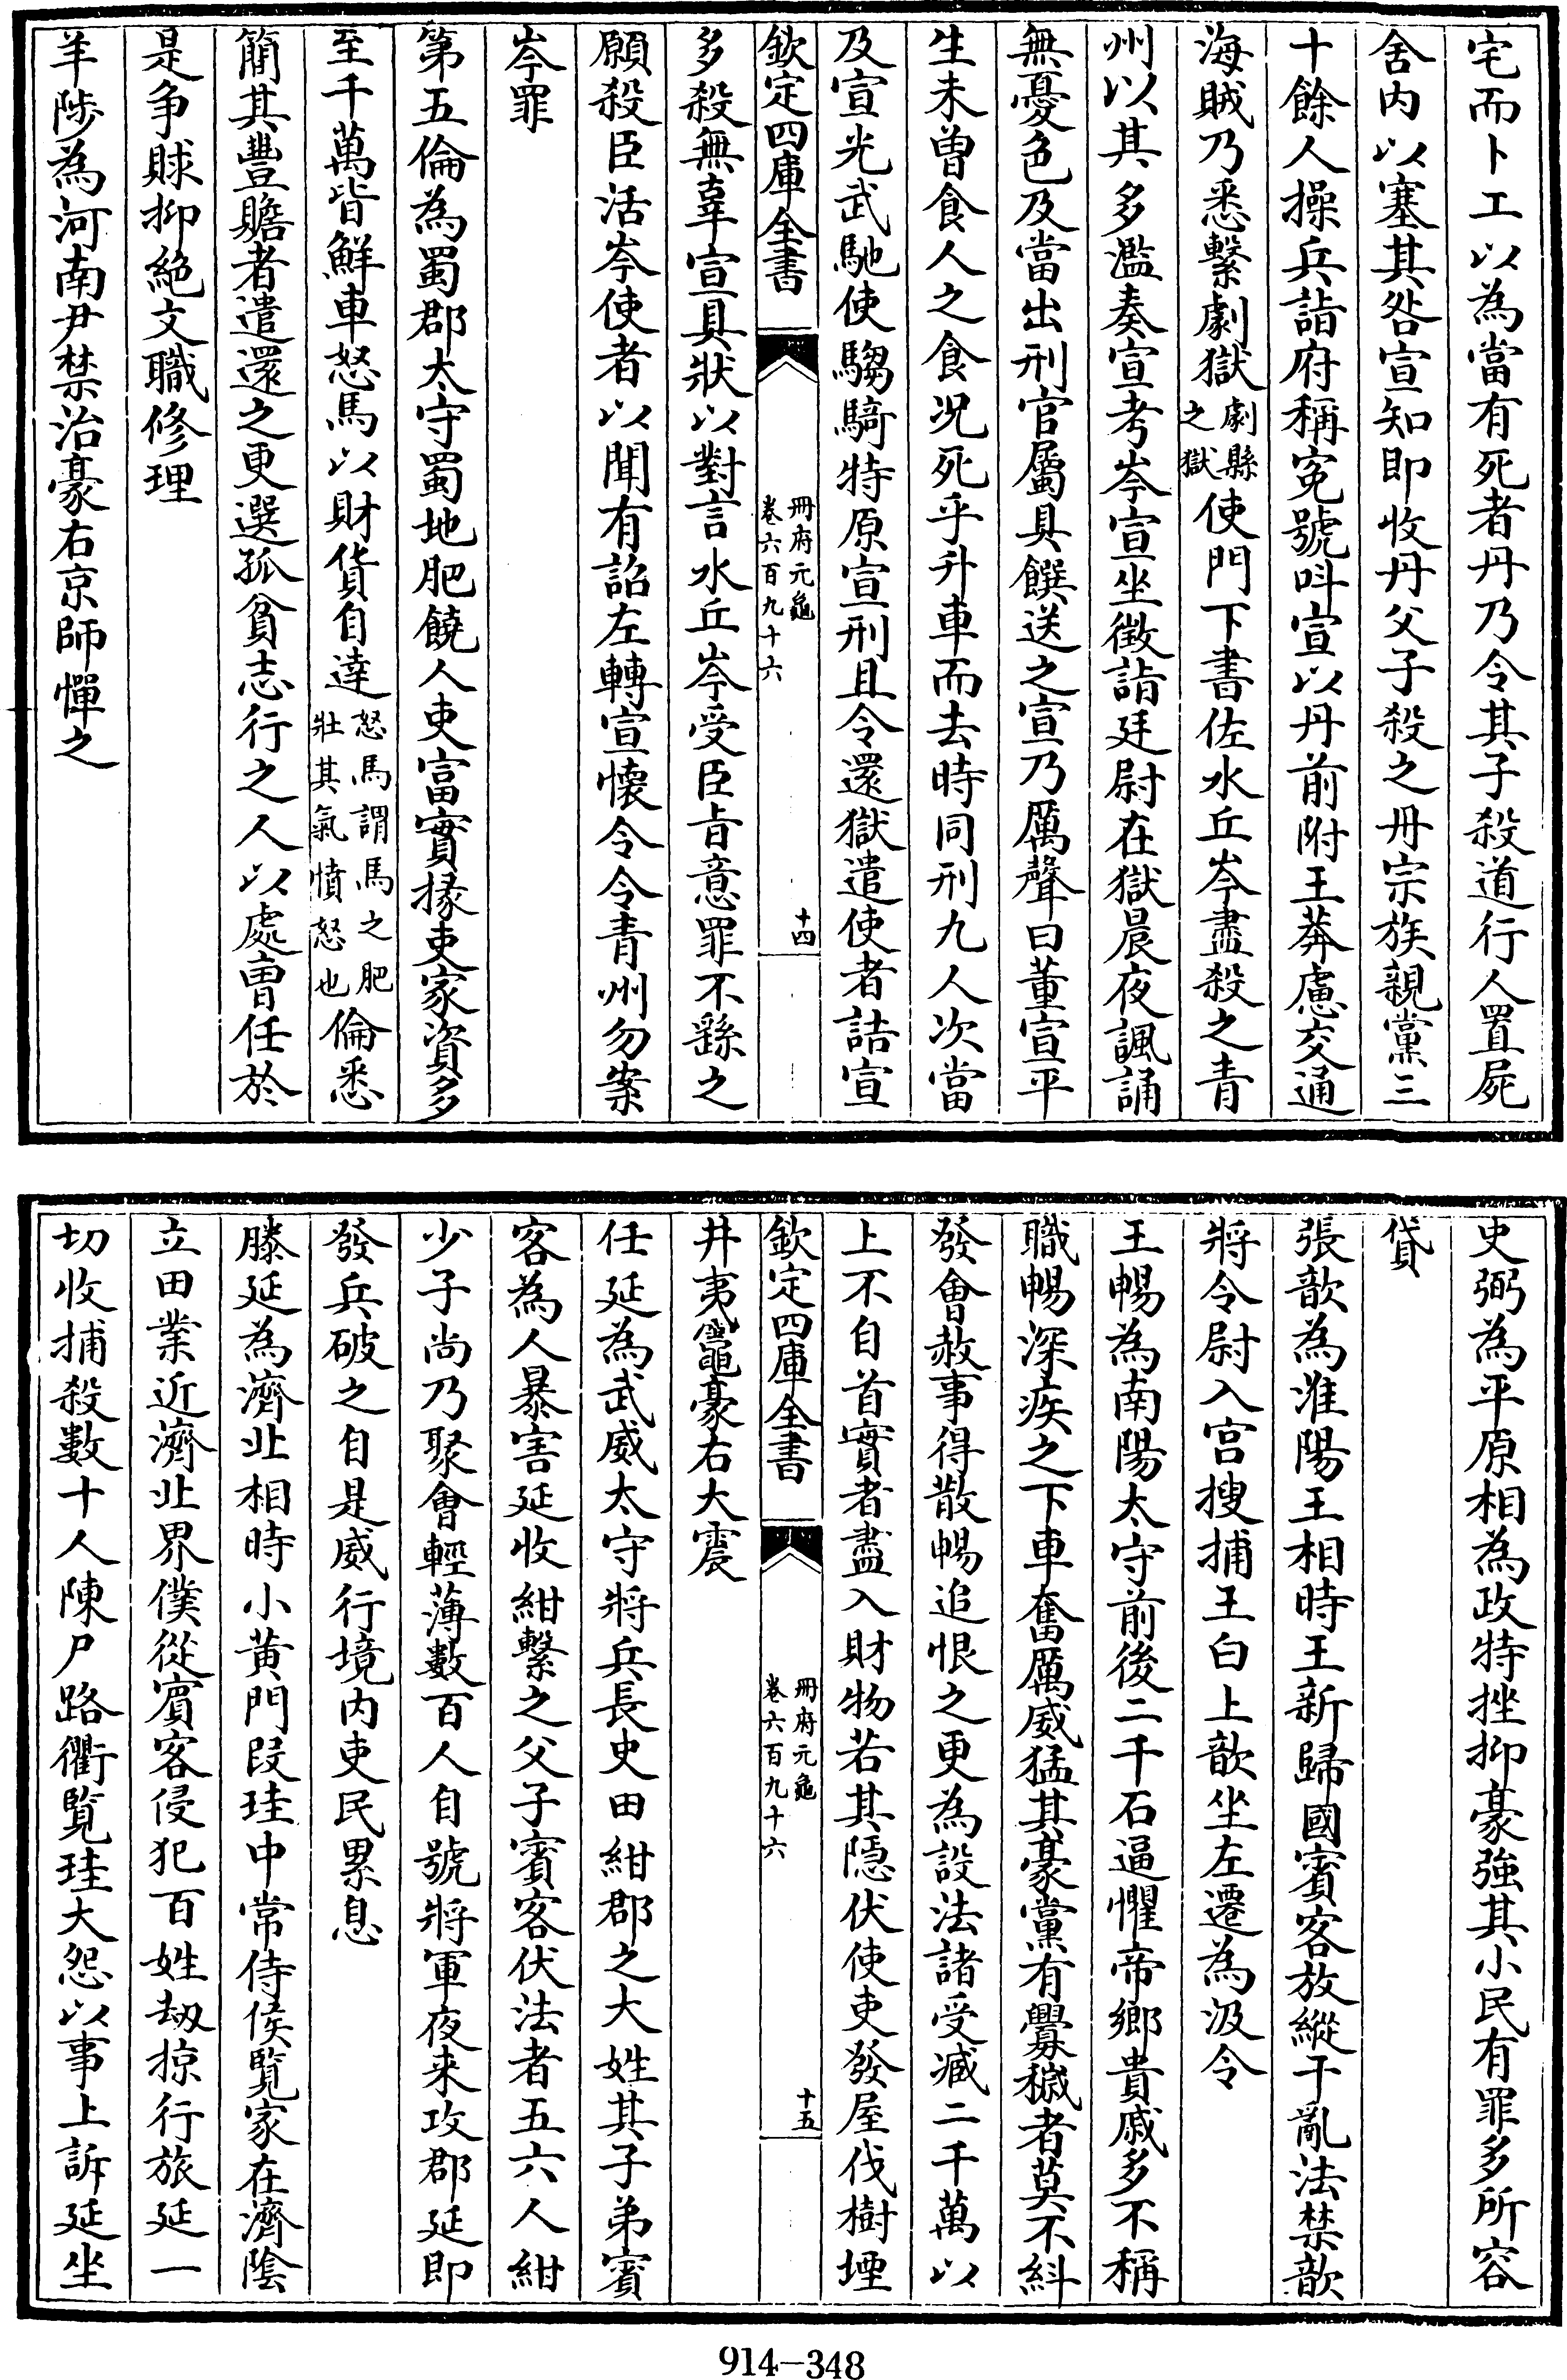 宅而卜工以為當有死者丹乃令其子殺道行人置屍
舍内以塞其咎宣知即收丹父子殺之丹宗族親黨三
十餘人操兵詣府稱寃號呌宣以丹前附王莽慮交通
海賊乃悉繫劇獄劇縣之獄使門下書佐水丘岑盡殺之青
州以其多濫奏宣考岑宣坐徵詣廷尉在獄晨夜諷誦
無憂色及當出刑官屬具饌送之宣乃厲聲曰董宣平
生未曾食人之食况死乎升車而去時同刑九人次當
及宣光武馳使騶騎特原宣刑且令還獄遣使者詰宣
欽定四庫全書
冊府元龜
卷六百九十六
十四
多殺無辜宣具狀以對言水丘岑受臣旨意罪不繇之
願殺臣活岑使者以聞有詔左轉宣懷令令青州勿案
岑罪
第五倫為蜀郡太守蜀地肥饒人吏富實掾吏家資多
至千萬皆鮮車怒馬以財貨自達怒馬謂馬之肥壯其氣憤怒也倫悉
簡其豐贍者遣還之更選孤貧志行之人以處曹任於
是争賕抑絶文職修理
羊陟為河南尹禁治豪右京師憚之
史弼為平原相為政特挫抑豪強其小民有罪多所容
貸
張歆為淮陽王相時王新歸國賓客放縱干亂法禁歆
將令尉入宫搜捕王白上歆坐左遷為汲令
王暢為南陽太守前後二千石逼懼帝鄉貴戚多不稱
職暢深疾之下車奮厲威猛其豪黨有釁穢者莫不糾
發會赦事得散暢追恨之更為設法諸受臧二千萬以
上不自首實者盡入財物若其隠伏使吏發屋伐樹堙
欽定四庫全書
冊府元龜
卷六百九十六
十五
井夷竈豪右大震
任延為武威太守將兵長史田紺郡之大姓其子弟賓
客為人暴害延收紺繫之父子賓客伏法者五六人紺
少子尚乃聚會輕薄數百人自號將軍夜来攻郡延即
發兵破之自是威行境内吏民累息
滕延為濟北相時小黄門段珪中常侍侯覽家在濟陰
立田業近濟北界僕從賓客侵犯百姓刼掠行旅延一
切收捕殺數十人陳尸路衢覽珪大怨以事上訴延坐
914-348